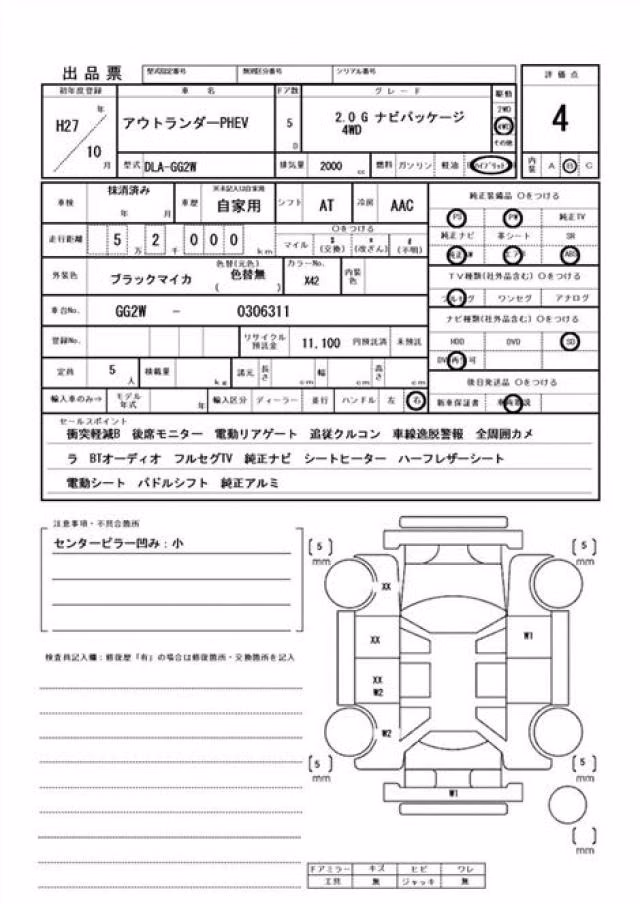 出品票 型式指定番号 類別区分番号 シリアル番号
評価点
初年度登録 車名 ドア数 グレード 駆動
H27 年 アウトランダーPHEV 5 D 2.0 G ナビパッケージ 4WD 2WD 4WD その他 4
10 月 型式 DLA-GG2W 排気量 2000 cc 燃料 ガソリン 軽油 ハイブリッド 内装 A B C
車検 抹消済み 年 月 車歴 ※未記入は自家用 自家用 シフト AT 冷房 AAC
純正装備品 〇をつける
PS PW 純正TV
走行距離 5 万 2 千 0 0 0 km 〇をつける マイル $ (交換) * (改ざん) # (不明)
純正ナビ 革シート SR
純正AW エアB ABS
外装色 ブラックマイカ 色替(元色) 色替無 ( ) カラーNo. X42 内装色
TV種類(社外品含む) 〇をつける
フルセグ ワンセグ アナログ
車台No. GG2W - 0306311
ナビ種類(社外品含む) 〇をつける
登録No. リサイクル預託金 11,100 円預託済 未預託
HDD DVD SD
DVD再生可
定員 5 人 積載量 kg 諸元 長さ cm 幅 cm 高さ cm
後日発送品 〇をつける
輸入車のみ⇒ モデル年式 年 輸入区分 ディーラー 並行 ハンドル 左 右
新車保証書 車両取説
セールスポイント
衝突軽減B 後席モニター 電動リアゲート 追従クルコン 車線逸脱警報 全周囲カメ
ラ BTオーディオ フルセグTV 純正ナビ シートヒーター ハーフレザーシート
電動シート パドルシフト 純正アルミ
注意事項・不具合箇所
センターピラー凹み:小
検査員記入欄:修復歴「有」の場合は修復箇所・交換箇所を記入
[ 5 ] mm [ 5 ] mm
XX
XX W1
XX
W2
W2
[ 5 ] mm [ 5 ] mm
W1
[ ] mm
ドアミラー キズ ヒビ ワレ
工具 無 ジャッキ 無